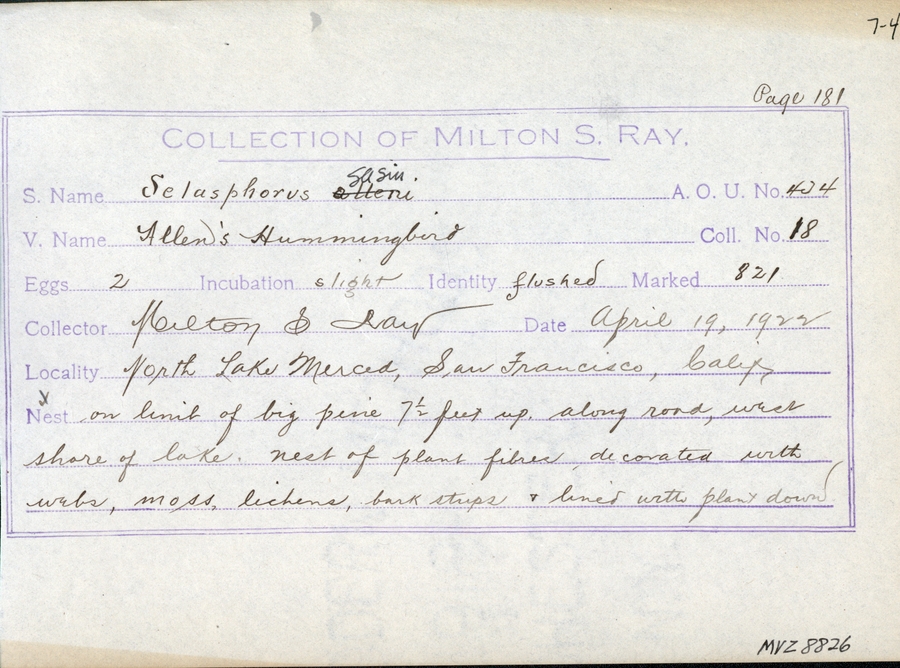 7-4
Page 181
COLLECTION OF MILTON S. RAY.
sasin.
S. Name Selasphorus alleni A. O. U. No. 434
V. Name Allen's Hummingbird Coll. No. 18
Eggs 2 Incubation slight Identity flushed Marked 821
Collector Milton S Ray Date April 19, 1922
Locality North Lake Merced, San Francisco, Calif,
x
Nest on limb of big pine 7½ feet up. along road, west
shore of lake. nest of plant fibres decorated with
webs, moss, lichens, bark strips & lined with plant down
MVZ 8826